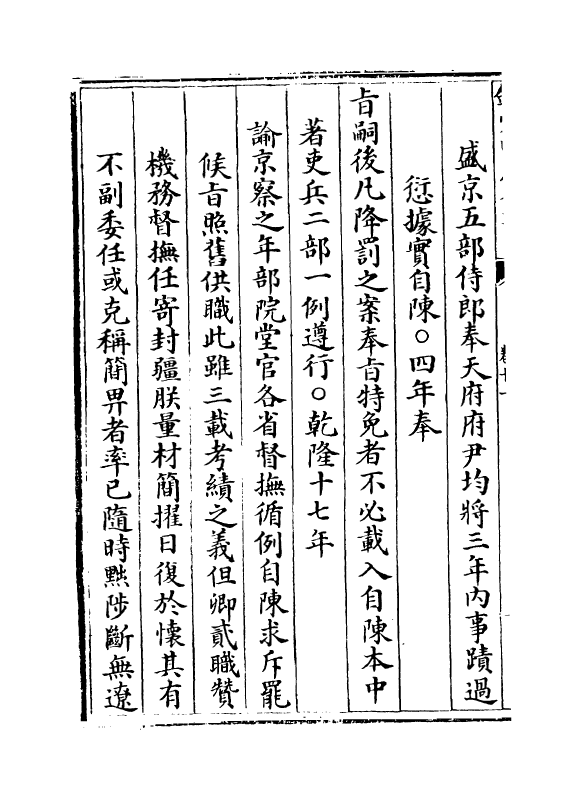 盛京五部侍郎奉天府府尹均將三年内事蹟過
愆據實自陳○四年奉
㫖嗣後凡降罰之案奉㫖特免者不必載入自陳本中
著吏兵二部一例遵行○乾隆十七年
諭京察之年部院堂官各省督撫循例自陳求斥罷
候㫖照舊供職此雖三載考績之義但卿貳職贊
機務督撫任寄封疆朕量材簡擢日復於懷其有
不副委任或克稱簡畀者率已隨時黜陟斷無遼